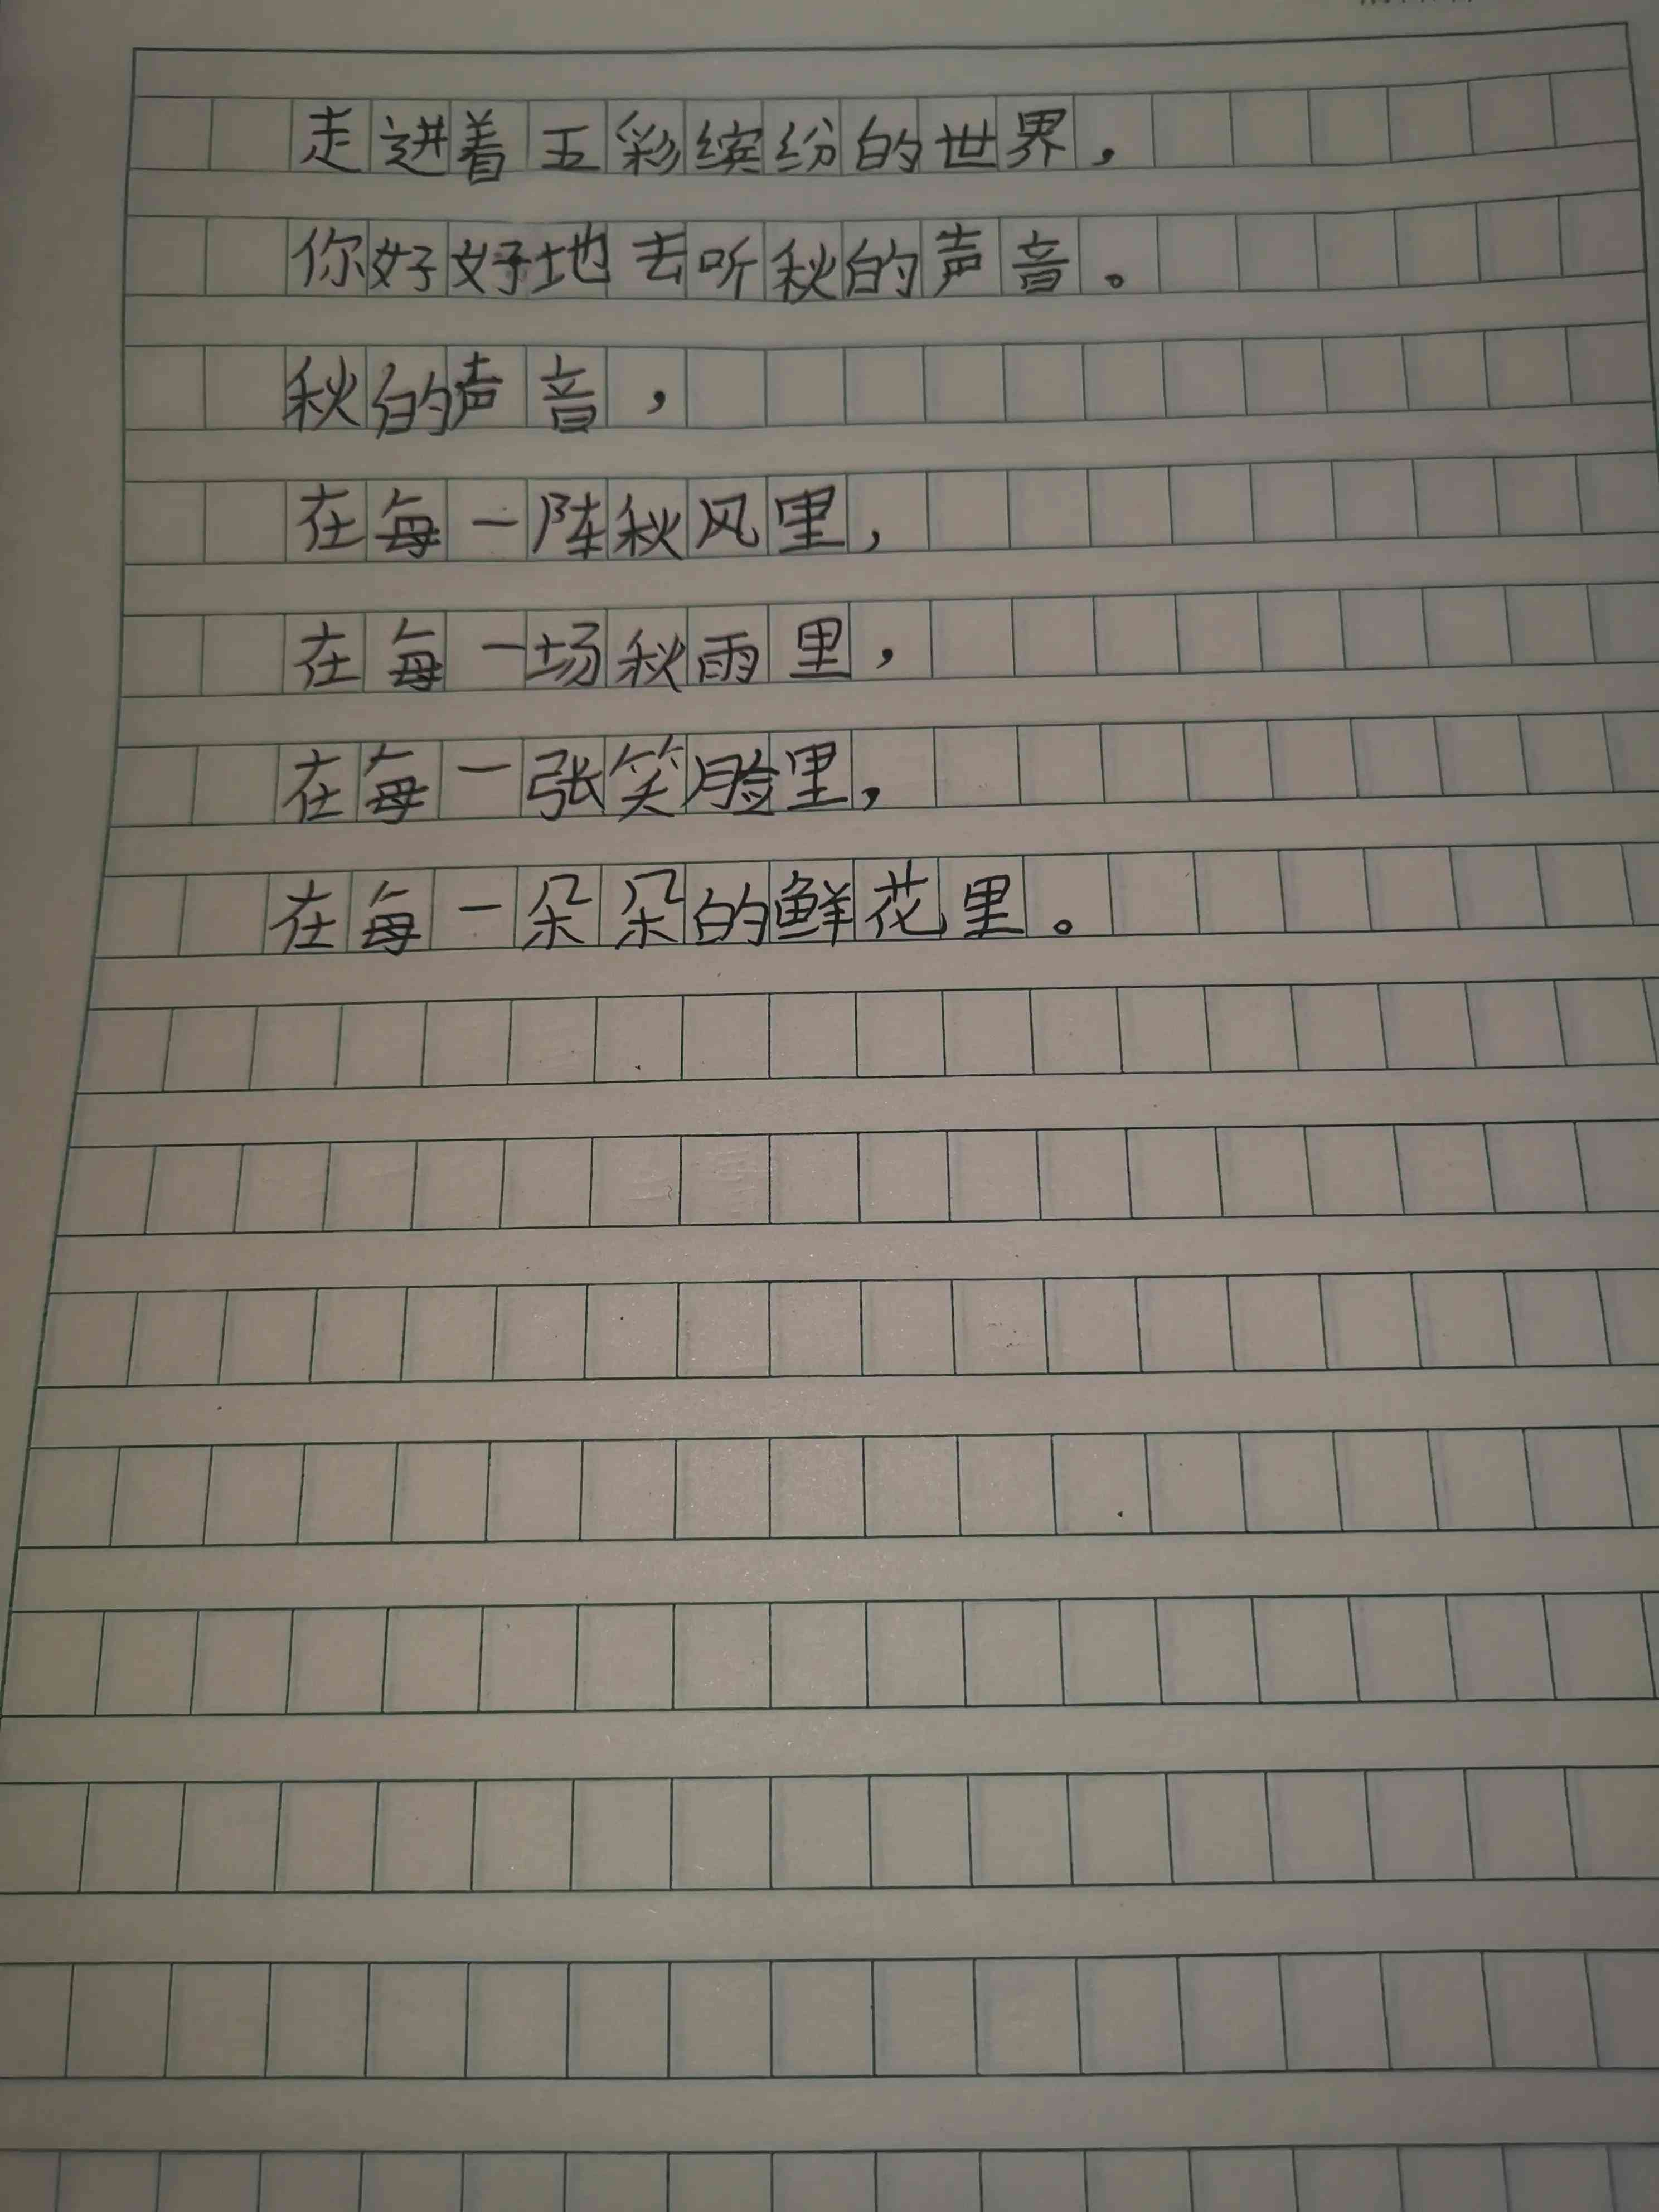 走进着五彩缤纷的世界，
你好好地去听秋的声音。
秋的声音，
在每一阵秋风里，
在每一场秋雨里，
在每一张笑脸里，
在每一朵朵的鲜花里。